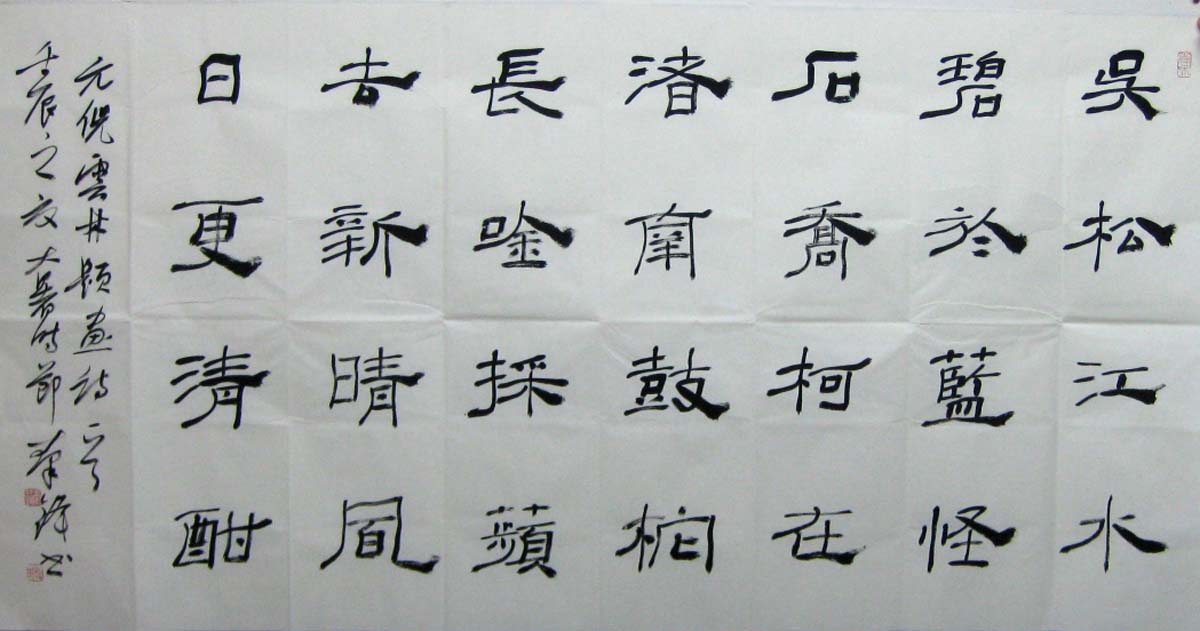 吳松江水
碧於藍怪
石喬柯在
渚南鼓柁
長唫採蘋
去新晴風
日更清酣
元倪雲林題畫詩一首
壬辰之夏大暑時節鋒书